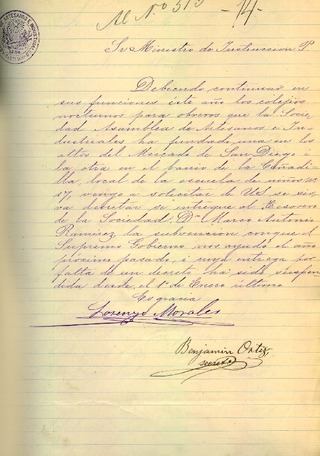 Al Nº 515 -14-
Sr Ministro de Instruccion P
Debiendo continuar en
sus funciones este año los colegios
nocturnos para obreros que la Socie
dad Asamblea de Artesanos e In-
dustriales, ha fundado, uno en los
altos del Mercado de San Diego i
la otra en el barrio de la Cañadi
lla, local de la escuela de niños Nº
17, vengo a solicitar de Ud se sir
va decretar se entregue al Tesorero
de la Sociedad, Dn Marco Antonio
Ramirez la subvencion con que el
Supremo Gobierno nos ayudó el año
próximo pasado, i cuya entrega por
falta de un decreto, ha sido suspen
dida desde el 1º de Enero último
Es gracia
Lorenzo Morales
Benjamin Ortiz
secreto